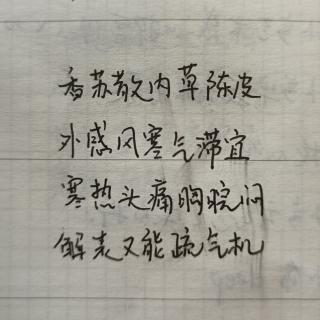 香苏散内草陈皮
外感风寒气滞宜
寒热头痛胸脘闷
解表又能疏气机